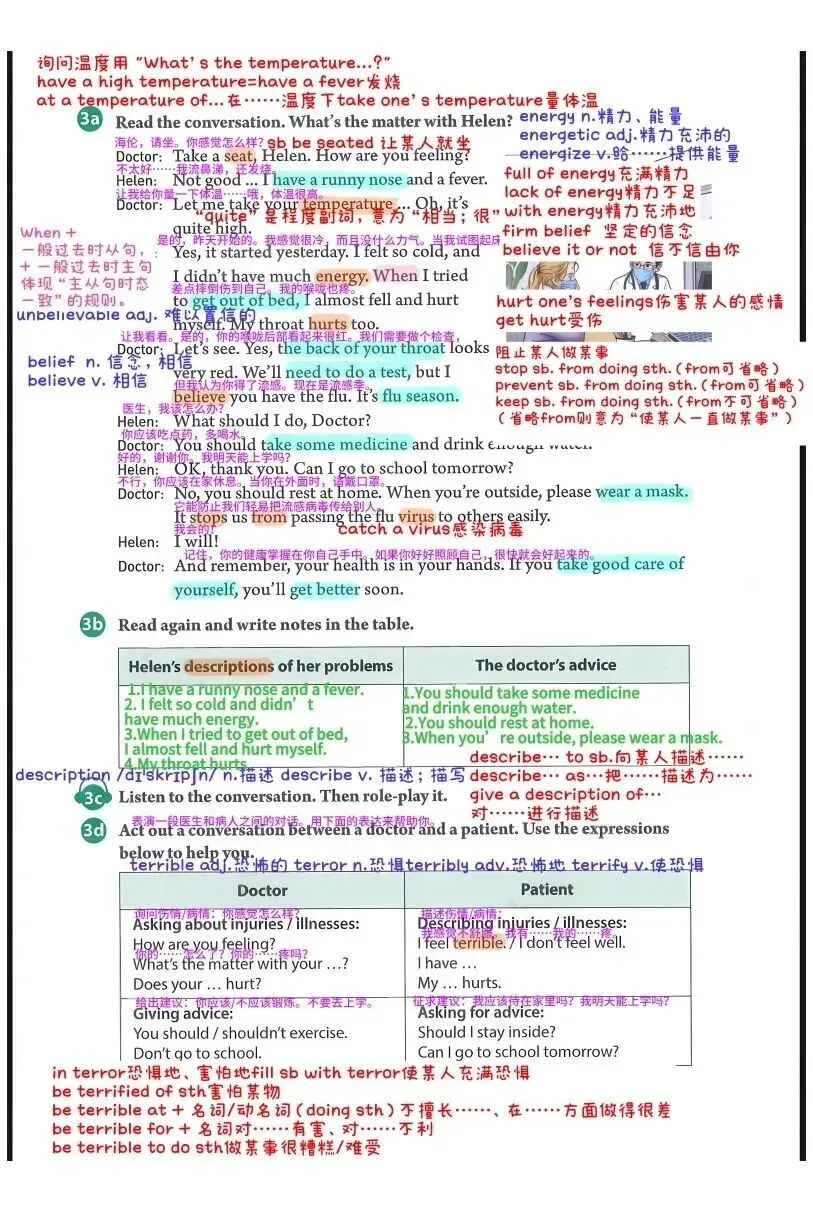 询问温度用 “What's the temperature...?”
have a high temperature=have a fever发烧
at a temperature of...在……温度下take one's temperature量体温
3a Read the conversation. What's the matter with Helen?
energy n.精力、能量
energetic adj.精力充沛的
energize v.给……提供能量
海伦，请坐。你感觉怎么样？
sb be seated 让某人就坐
Doctor: Take a seat, Helen. How are you feeling?
不太好……我流鼻涕，还发烧。
full of energy充满精力
Helen: Not good ... I have a runny nose and a fever.
lack of energy精力不足
让我给你量一下体温……哦，体温很高。
Doctor: Let me take your temperature ... Oh, it's
with energy精力充沛地
“quite” 是程度副词，意为 “相当；很”
quite high.
firm belief 坚定的信念
believe it or not 信不信由你
When +
一般过去时从句，
+ 一般过去时主句
体现 “主从句时态
一致” 的规则。
是的，昨天开始的。我感觉很冷，而且没什么力气。当我试图起床
Yes, it started yesterday. I felt so cold, and
I didn't have much energy. When I tried
差点摔倒伤到自己。我的喉咙也疼。
to get out of bed, I almost fell and hurt
hurt one's feelings伤害某人的感情
get hurt受伤
unbelievable adj. 难以置信的
myself. My throat hurts too.
让我看看。是的，你的喉咙后部看起来很红。我们需要做个检查，
Doctor: Let's see. Yes, the back of your throat looks
阻止某人做某事
stop sb. from doing sth.（from可省略）
prevent sb. from doing sth.（from可省略）
keep sb. from doing sth.（from不可省略）
（省略from则意为“使某人一直做某事”）
belief n. 信念，相信
believe v. 相信
very red. We'll need to do a test, but I
但我认为你得了流感。现在是流感季。
believe you have the flu. It's flu season.
医生，我该怎么办？
Helen: What should I do, Doctor?
你应该吃点药，多喝水。
Doctor: You should take some medicine and drink enough water.
好的，谢谢你。我明天能上学吗？
Helen: OK, thank you. Can I go to school tomorrow?
不行，你应该在家休息。当你在外面时，请戴口罩。
Doctor: No, you should rest at home. When you're outside, please wear a mask.
它能防止我们轻易把流感病毒传给别人。
It stops us from passing the flu virus to others easily.
我会的！
catch a virus感染病毒
Helen: I will!
记住，你的健康掌握在你自己手中。如果你好好照顾自己，很快就会好起来的。
Doctor: And remember, your health is in your hands. If you take good care of
yourself, you'll get better soon.
3b Read again and write notes in the table.
Helen's descriptions of her problems
The doctor's advice
1.I have a runny nose and a fever.
2. I felt so cold and didn't
have much energy.
3.When I tried to get out of bed,
I almost fell and hurt myself.
4.My throat hurts
1.You should take some medicine
and drink enough water.
2.You should rest at home.
3.When you're outside, please wear a mask.
describe… to sb.向某人描述……
description /dɪˈskrɪpʃn/ n.描述 describe v. 描述；描写
describe… as…把……描述为……
give a description of…
对……进行描述
3c Listen to the conversation. Then role-play it.
表演一段医生和病人之间的对话。用下面的表达来帮助你。
3d Act out a conversation between a doctor and a patient. Use the expressions
below to help you.
terrible adj.恐怖的 terror n.恐惧terribly adv.恐怖地 terrify v.使恐惧
Doctor
Patient
询问伤情/病情：你感觉怎么样？
Asking about injuries / illnesses:
How are you feeling?
你的……怎么了？你的……疼吗？
What's the matter with your ...?
Does your ... hurt?
描述伤情/病情：
Describing injuries / illnesses:
我感觉不舒服。我有……我的……疼。
I feel terrible. / I don't feel well.
I have ...
My ... hurts.
给出建议：你应该/不应该锻炼。不要去上学。
Giving advice:
You should / shouldn't exercise.
Don't go to school.
征求建议：我应该待在家里吗？我明天能上学吗？
Asking for advice:
Should I stay inside?
Can I go to school tomorrow?
in terror恐惧地、害怕地fill sb with terror使某人充满恐惧
be terrified of sth害怕某物
be terrible at + 名词/动名词（doing sth）不擅长……、在……方面做得很差
be terrible for + 名词对……有害、对……不利
be terrible to do sth做某事很糟糕/难受